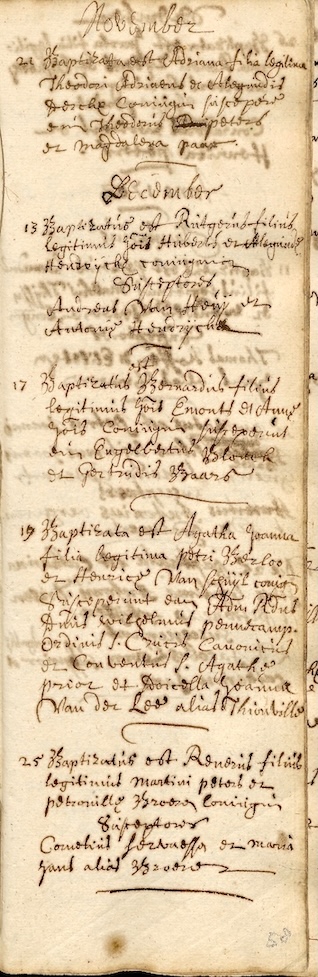 November
21 Baptizata est Adriana filia legitima
Theodori Adriaens et Aleijmidis
Dercks Coniugum suscepere
eam Theodorus peters
et Magdalena paax
December
13 Baptizatus est Rutgerus filius
legitimus Jois Huberts et
Hendrycks coniugum
Susceptores
Andreas Van et
Antonij Hendrycks
est
17 Baptizatus Bernardus filius
legitimus Jois Emonts et Annę
Jois Coniugum susceperunt
eum Engelbertus Blonck
et Gertrudis Baars
19 Baptizata est Agatha Joanna
filia legitima petri Berloo
et Henricę Van coniug
Susceperunt eam Adm Rdus
Dnus Wilhelmus pennecamp.
Ordinis S. Crucis Canonicus
et Conventus S. Agathę
prior et Doicella Joanna
Van der Lee alias Thionville
25 Baptizatus est Renerus filius
legitimus Martini peters et
petronillę Broers Coniugum
Susceptores
Cornelius Servaesse et Maria
Jans alias Broers
58